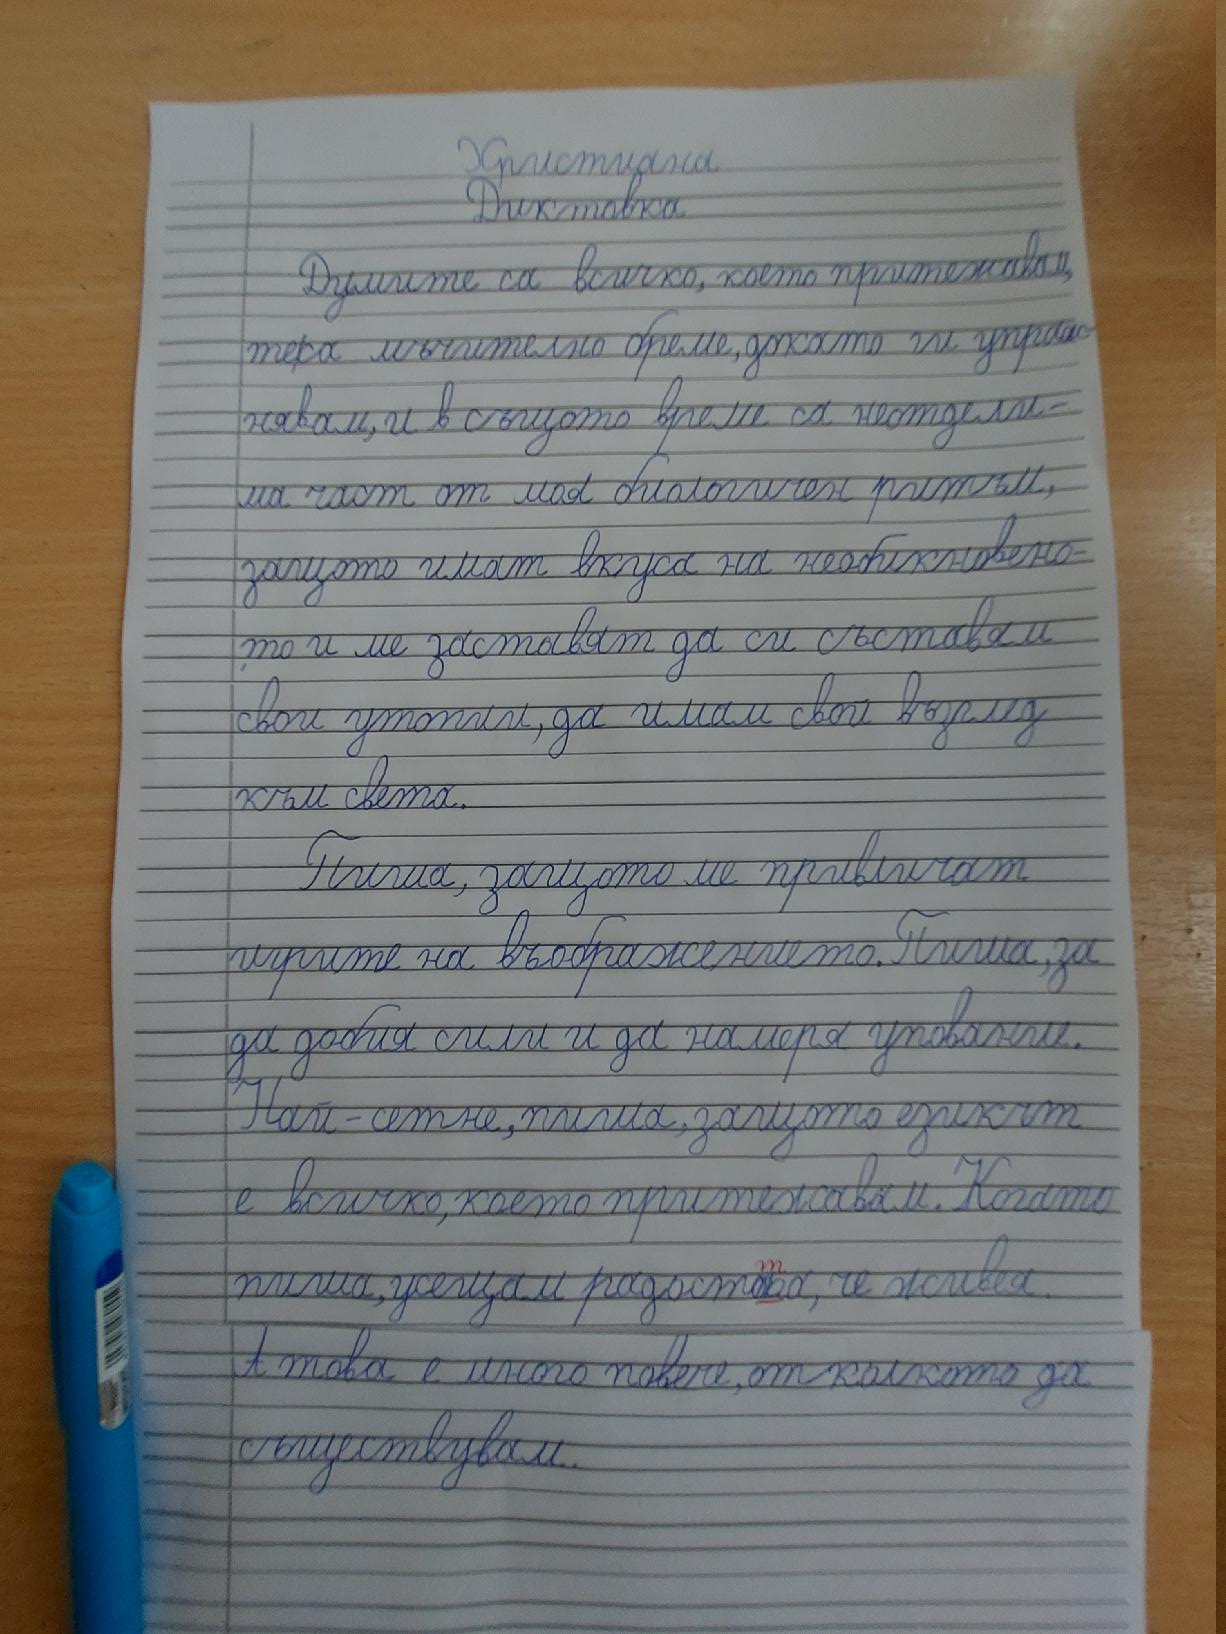 Християна
Диктовка
Думите са всичко, което притежавам,
тежа мъчително бреме, докато ги упраж-
нявам, и в същото време са неотдели-
ма част от моя биологичен ритъм,
защото имат вкуса на необикновено-
то и ме заставят да си съставям
свои утопии, да имам свои възглед
към света.
Пиша, защото ме привличат
игрите на въображението. Пиша, за
да добия сили и да намеря упование.
Най-сетне, пиша, защото езикът
е всичко, което притежавам. Когато
пиша, усещам радостта, че живея.
А това е много повече, от колкото да
съществувам.